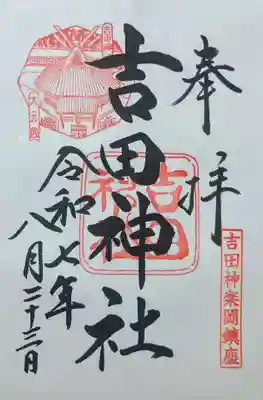 奉拝
吉田神社
令和七年
八月二十三日
吉田神楽岡鎮座